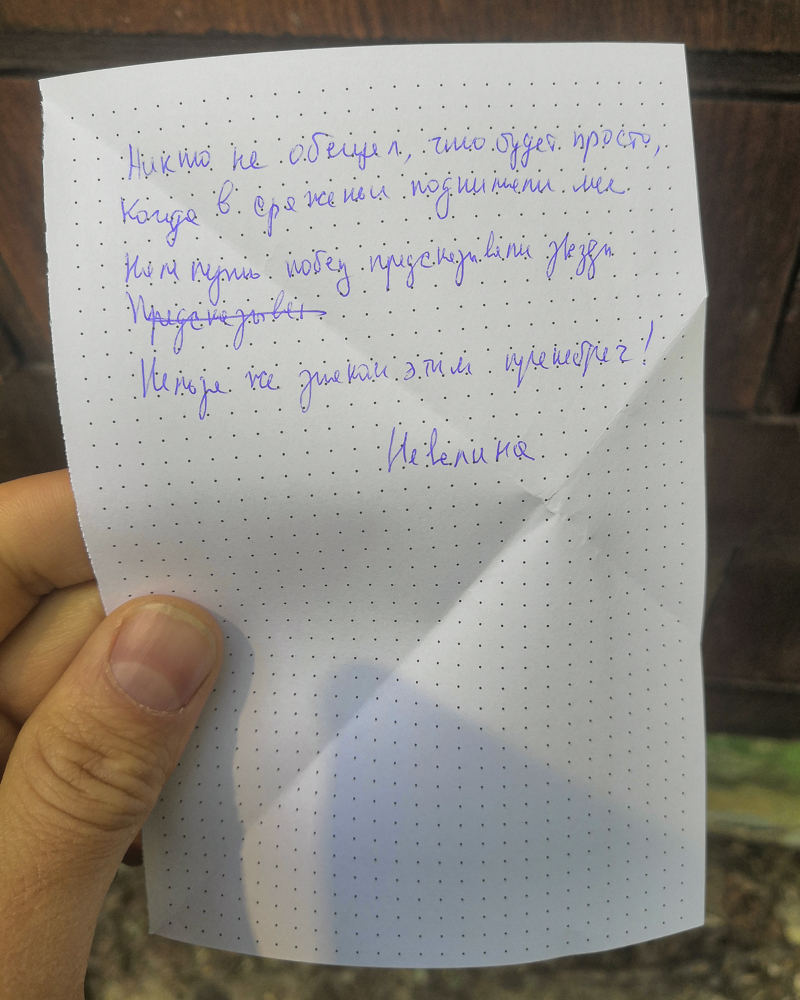 Никто не обещал, что будет просто,
Когда в сраженьи поднимали меч
Нам путь побед предсказывали звёзды
Предсказывал
Нельзя же знаком этим пренебречь!
Невелина